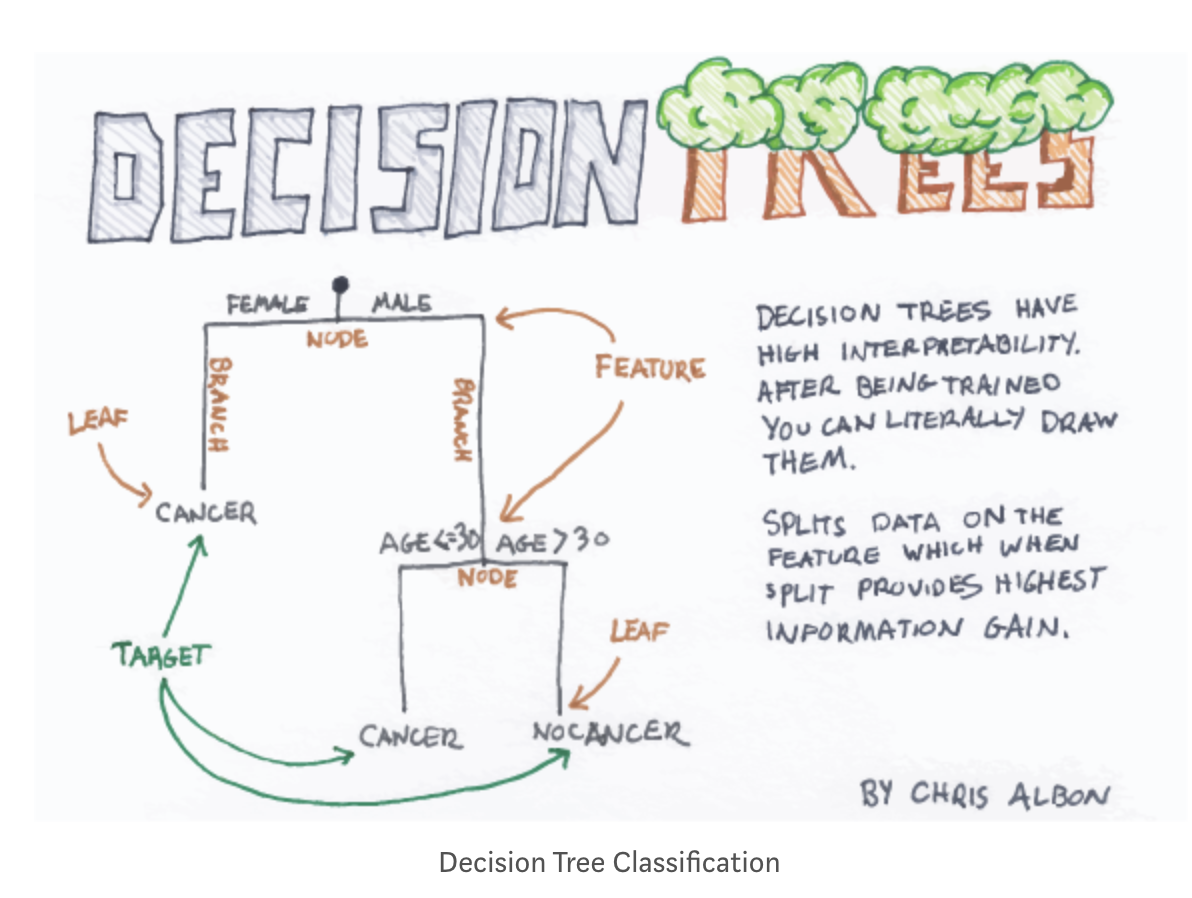 DECISION TREES
FEMALE MALE
NODE
FEATURE
BRANCH
BRANCH
LEAF
CANCER
AGE<=30 AGE>30
NODE
LEAF
TARGET
CANCER
NOCANCER
DECISION TREES HAVE
HIGH INTERPRETABILITY.
AFTER BEING TRAINED
YOU CAN LITERALLY DRAW
THEM.
SPLITS DATA ON THE
FEATURE WHICH WHEN
SPLIT PROVIDES HIGHEST
INFORMATION GAIN.
BY CHRIS ALBON
Decision Tree Classification